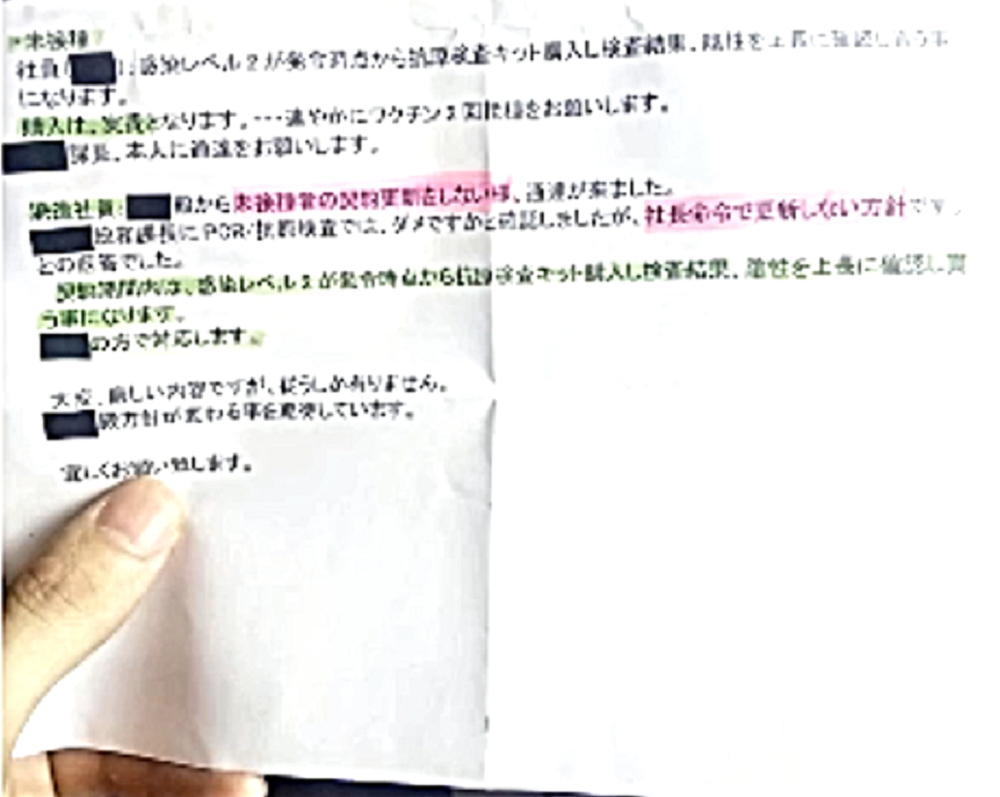 未接種
社員( ):感染レベル2が発令時点から抗原検査キット購入し検査結果、陰性を上長に確認し
になります。
購入は、実費となります。…速やかにワクチン2回接種をお願いします。
課長、本人に通達をお願いします。
派遣社員: 殿から未接種者の契約更新をしない 、通達が来ました。
課長にPCR・抗原検査では、ダメですかと確認しましたが、社長命令で更新しない方針です。
との回答でした。
契約期間内は、感染レベル2が発令時点から抗原検査キット購入し検査結果、陰性を上長に確認し貰
う事になります。
の方で対応します。
大変、厳しい内容ですが、従うしかありません。
方針が変わる事を期待しています。
宜しくお願い致します。